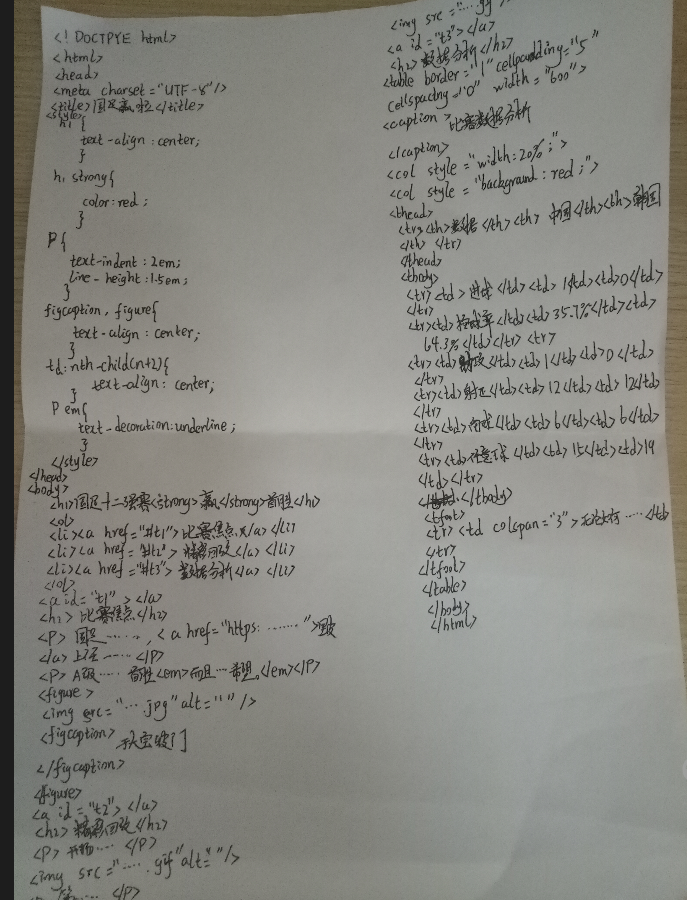 <! DOCTPYE html>
<html>
<head>
<meta charset="UTF-8"/>
<title>国足赢啦</title>
<style>
h1 {
text-align:center;
}
h1 strong{
color:red;
}
P{
text-indent:2em;
line-height:1.5em;
}
figcaption, figure{
text-align:center;
}
td:nth-child(n+2){
text-align: center;
}
P em{
text-decoration:underline;
}
</style>
</head>
<body>
<h1>国足十二强赛<strong>赢</strong>首胜</h1>
<ol>
<li><a href="#t1">比赛焦点</a></li>
<li><a href="#t2">精彩回放</a></li>
<li><a href="#t3">数据分析</a></li>
</ol>
<a id="t1"></a>
<h2>比赛焦点</h2>
<P>国足……,<a href="https:……">
</a>上……</P>
<P>A……首胜<em>而且…希望。</em></P>
<figure>
<img src="….jpg" alt=""/>
<figcaption>
</figcaption>
<figure>
<a id="t2"></a>
<h2>精彩回放</h2>
<P>开场……</P>
<img src="…….gif" alt=""/>
……</P>
<img src="…
<a id="t3"></a>
<h2>数据分析</h2>
<table border="1" cellpadding="5"
cellspacing="0" width="600">
<caption>比赛数据分析
</caption>
<col style="width:20%;">
<col style="background:red;">
<thead>
<tr><th>数据</th><th>中国</th><th>韩国
</th></tr>
</thead>
<tbody>
<tr><td>进球</td><td>1/td><td>0</td>
</tr>
<tr><td>控球率</td><td>35.7%</td><td>
64.3%</td></tr><tr>
<tr><td>射攻</td><td>1</td><td>0</td>
</tr>
<tr><td>射正</td><td>12</td><td>12</td>
</tr>
<tr><td>角球</td><td>6</td><td>6</td>
</tr>
<tr><td>任意球</td><td>15</td><td>19
</td></tr>
</tbody>
<tfoot>
<tr><td colspan="3">无论……</td>
</tr>
</tfoot>
</table>
</body>
</html>